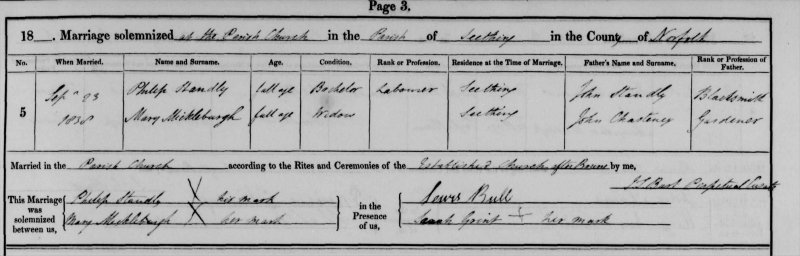 Page 3.
18__. Marriage solemnized at the Parish Church in the Parish of Seething in the County of Norfolk
No. When Married. Name and Surname. Age. Condition. Rank or Profession. Residence at the Time of Marriage. Father's Name and Surname. Rank or Profession of Father.
Sepr 23 Philip Standly full age Bachelor Labourer Seething John Standly Blacksmith
5
1838 Mary Mickleburgh full age Widow Seething John Chasteney Gardener
Married in the Parish Church according to the Rites and Ceremonies of the Established Church after Banns by me,
Perpetual Curate
This Marriage was solemnized between us, Philip Standly X his mark in the Presence of us, Lewis Bull
Mary Mickleburgh X her mark Sarah Grint + her mark